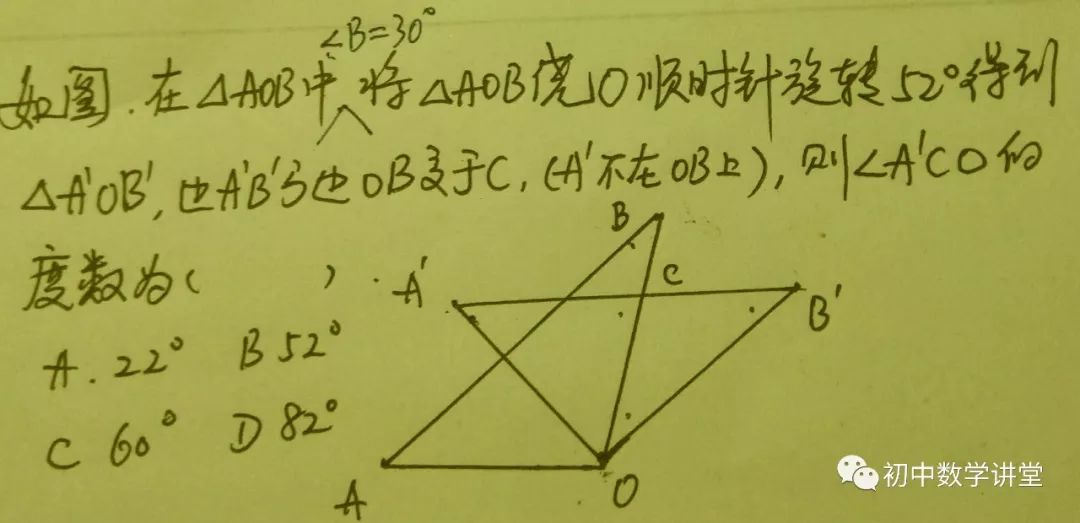 ∠B=30°
如图.在△AOB中,将△AOB绕O顺时针旋转52°得到
△A'OB',边A'B'与边OB交于C,(A'不在OB上),则∠A'CO的
度数为( ).
A. 22° B 52°
C 60° D 82°
B
A'
C
B'
A
O
初中数学讲堂